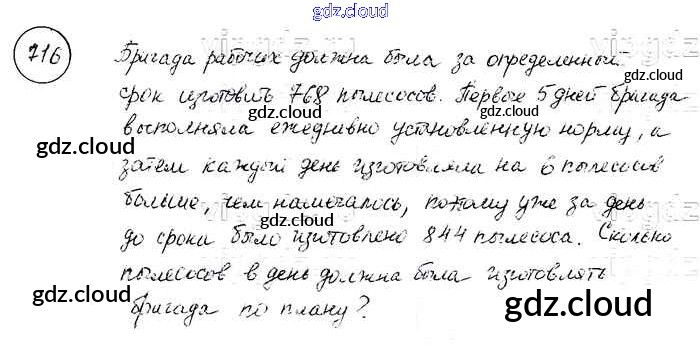 gdz.cloud
716
Бригада рабочих должна была за определенный
gdz.cloud
срок изготовить 768 пылесосов. Первые 5 дней бригада
gdz.cloud
выполняла ежедневно установленную норму, а
gdz.cloud
затем каждый день изготовляла на 6 пылесосов
gdz.cloud
больше, чем намечалось, потому уже за день
gdz.cloud
до срока было изготовлено 844 пылесоса. Сколько
gdz.cloud
пылесосов в день должна была изготовлять
gdz.cloud
gdz.cloud
бригада по плану?